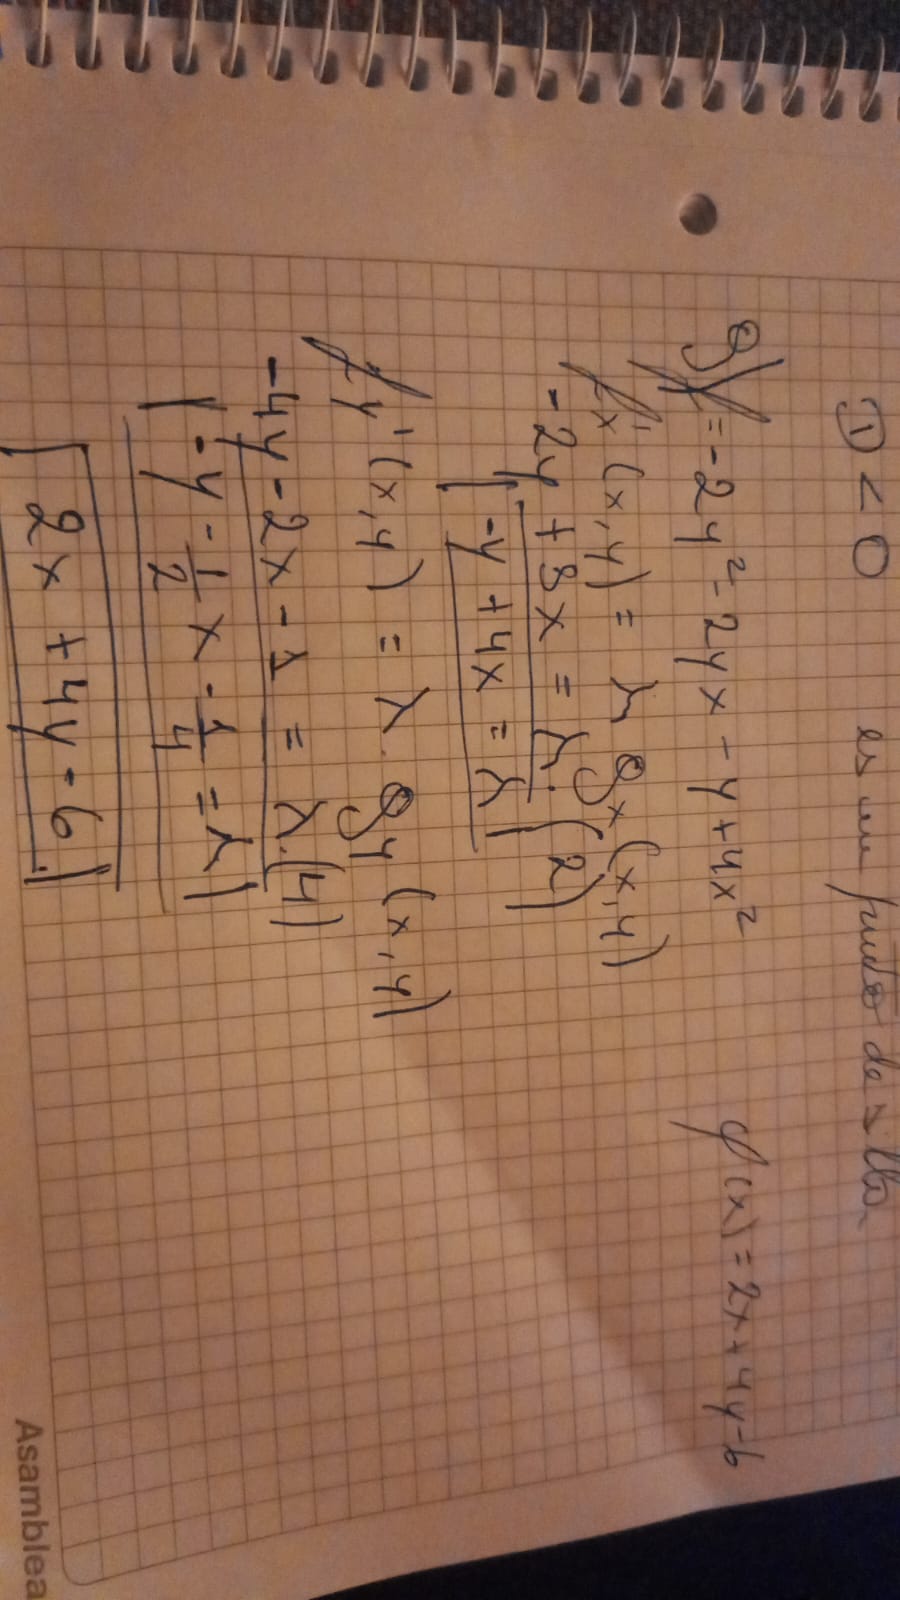 D < 0 es un punto de silla
g) f = -2y² - 2yx - y + 4x² φ(x) = 2x + 4y - 6
fx' (x,y) = λ gx (x,y)
-2y + 8x = λ.(2)
-y + 4x = λ
fy' (x,y) = λ. gy (x,y)
-4y - 2x - 1 = λ.(4)
-y - 1/2 x - 1/4 = λ
2x + 4y - 6
Asamblea